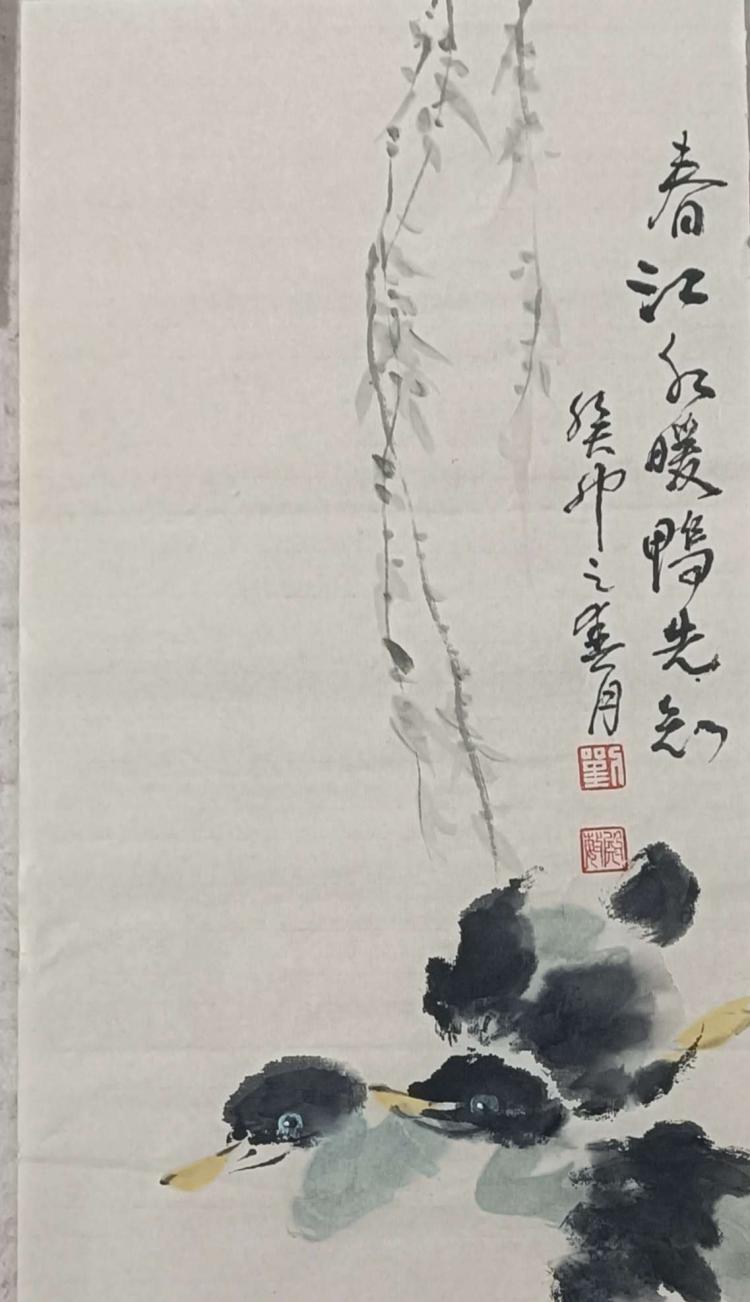 春江水暖鸭先知
癸卯之春月
劉